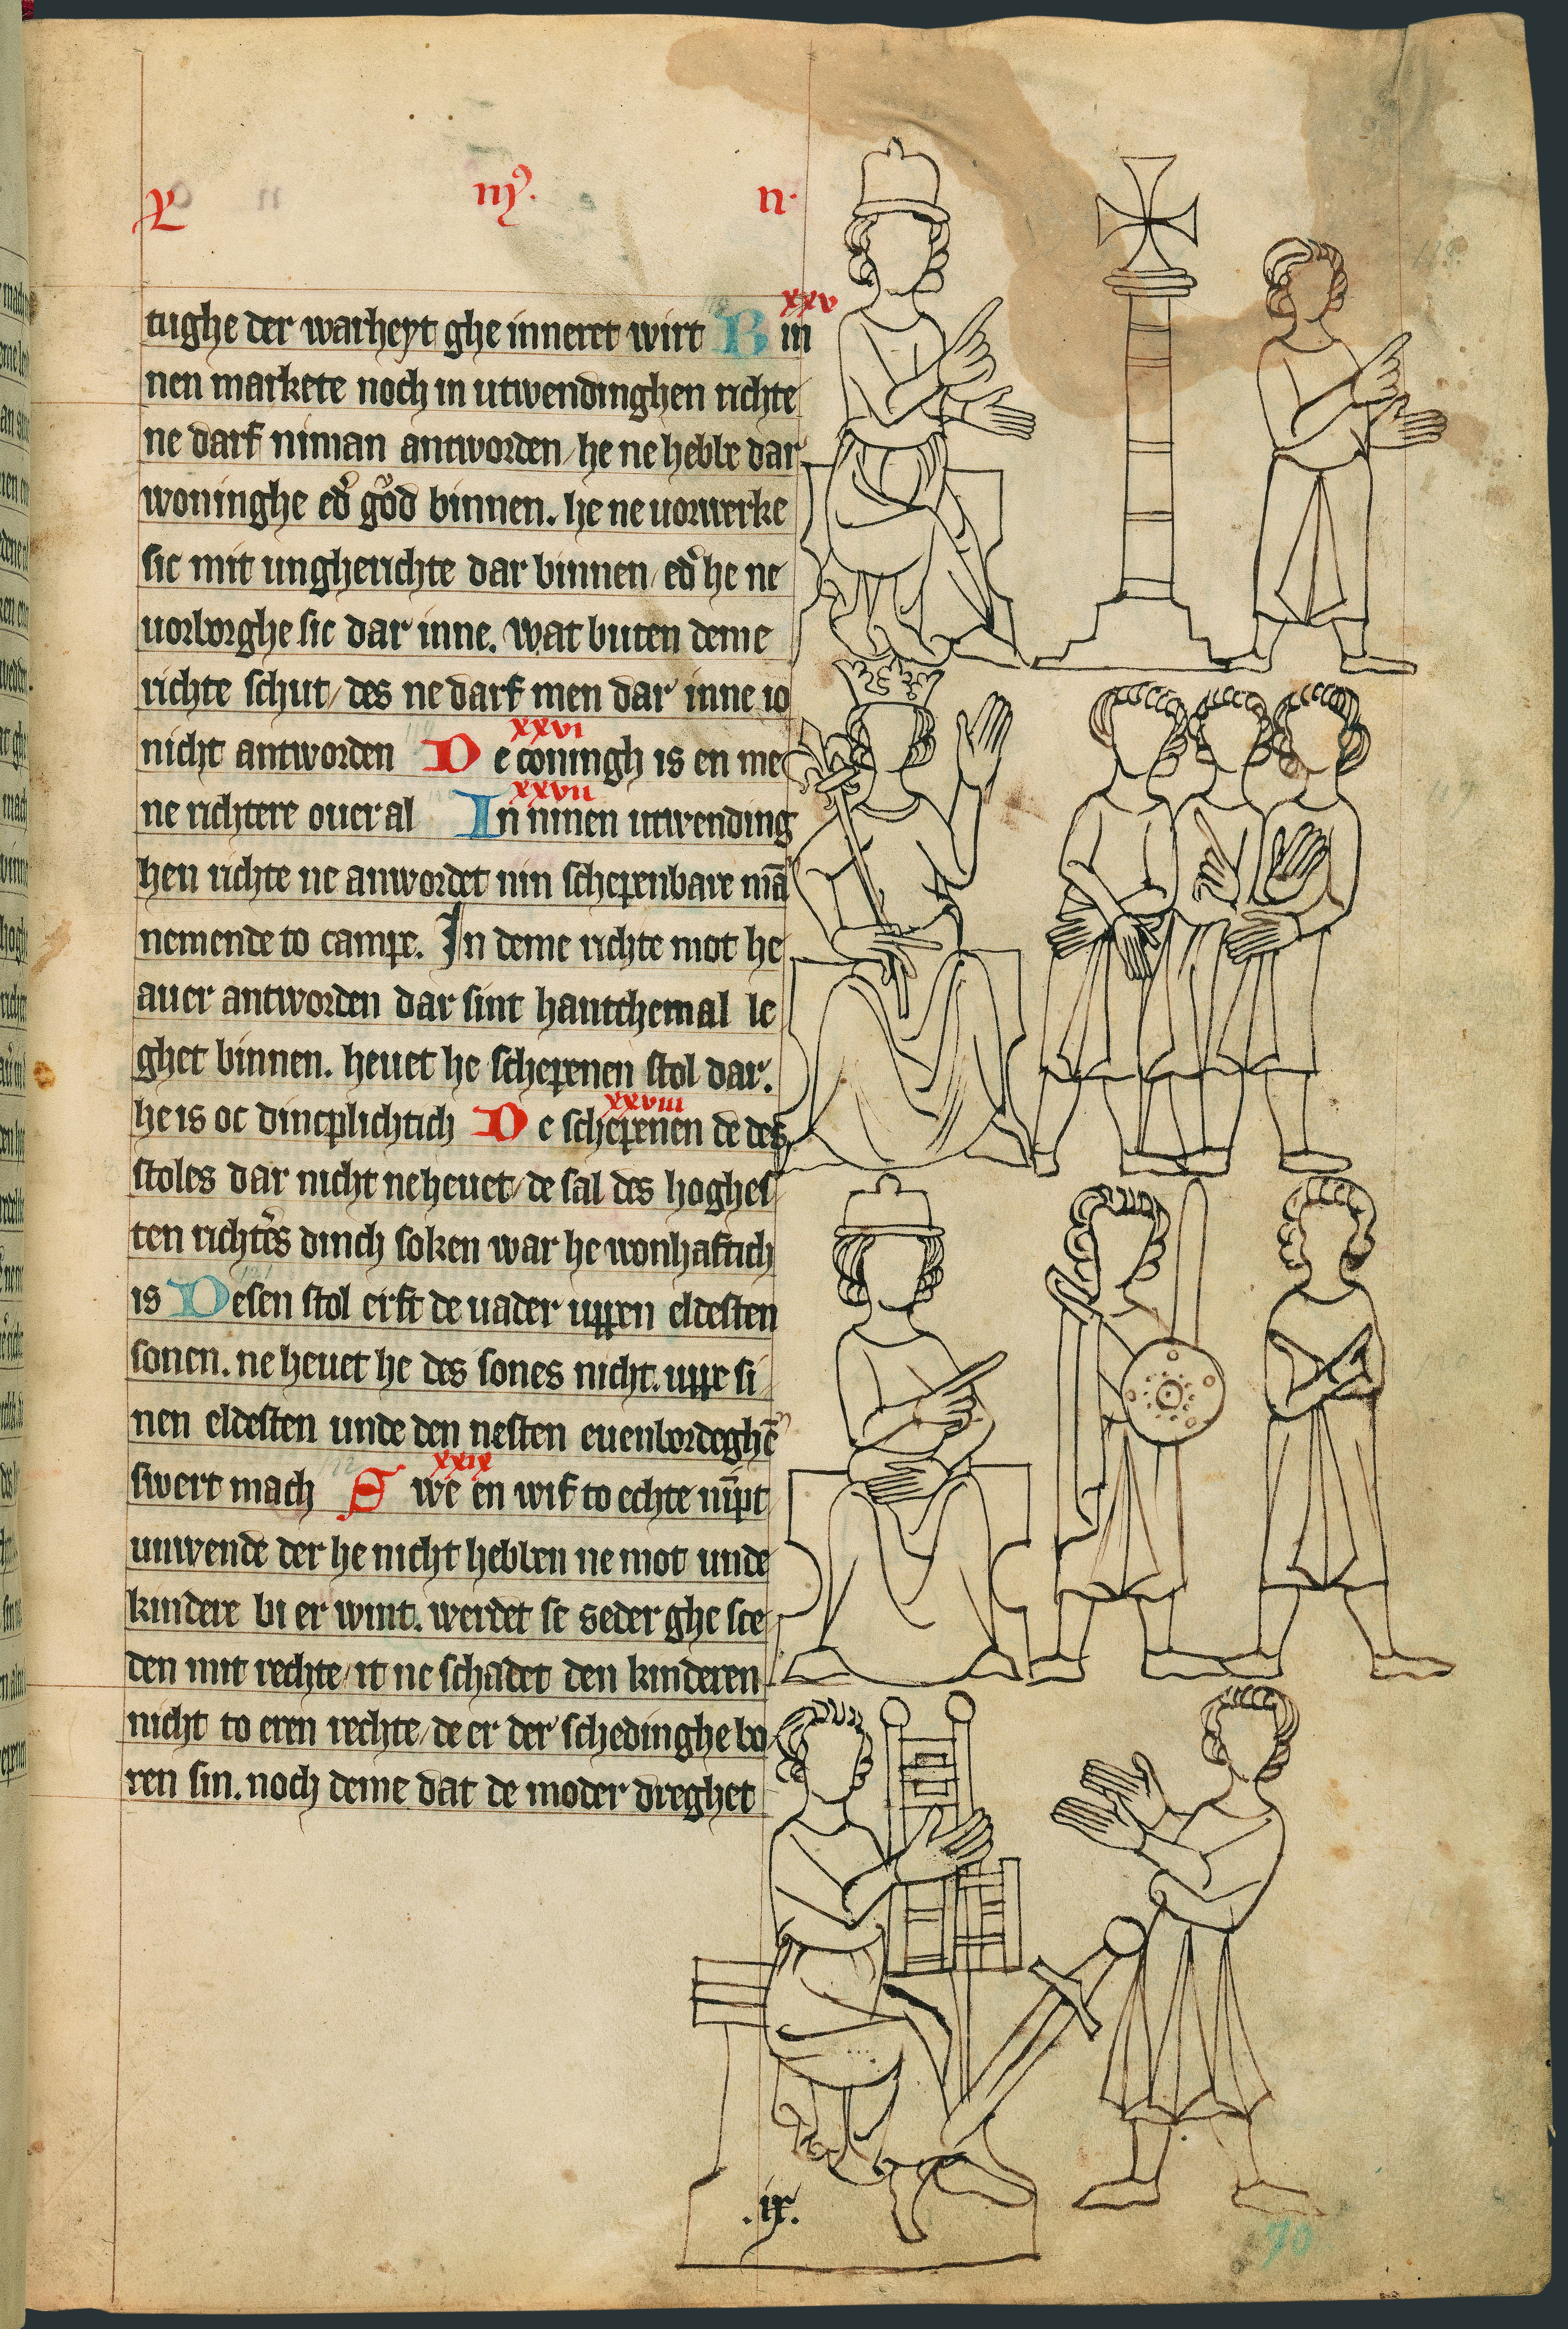 L iij⁹. n·
xxv
tughe der warheyt ghe inneret wirt B in
nen markete noch in utwendinghen richte
ne darf niman antworden / he ne hebbe dar
woninghe edͦ gͦod binnen. he ne uorwerke
sic mit ungherichte dar binnen / edͦ he ne
uorborghe sic dar inne. wat buten deme
richte schut / des ne darf men dar inne io
xxvi
nicht antworden D e coningh is en me
xxvii
ne richtere ouer al In ninen utwending
hen richte ne anwordet nin schepenbare mā
nemende to campe. In deme richte mot he
auer antworden dar sint hantthemal le
ghet binnen. heuet he schepenen stol dar.
xxviii
he is oc dincplichtich D e schepenen de des
stoles dar nicht ne heuet / de sal des hoghes
ten richtͤs dinch soken war he wonhaftich
is Desen stol erft de uader uppen eldesten
sonen. ne heuet he des sones nicht. uppe si
nen eldesten unde den nesten euenbordeghē
xxix
swert mach S we en wif to echte nīpt
unwende der he nicht hebben ne mot unde
kindere bi er wint. werdet se seder ghe sce
den mit rechte / it ne schadet den kinderen
nicht to eren rechte / de er der schedinghe bo
ren sin. noch deme dat de moder dreghet
.ix.
70